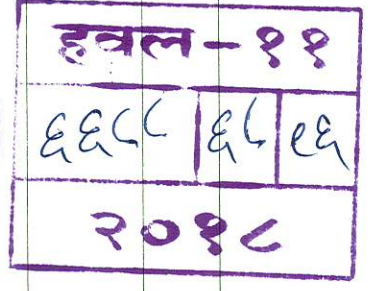 हवल - ११
६६८८ ६८ ९६
२०१८